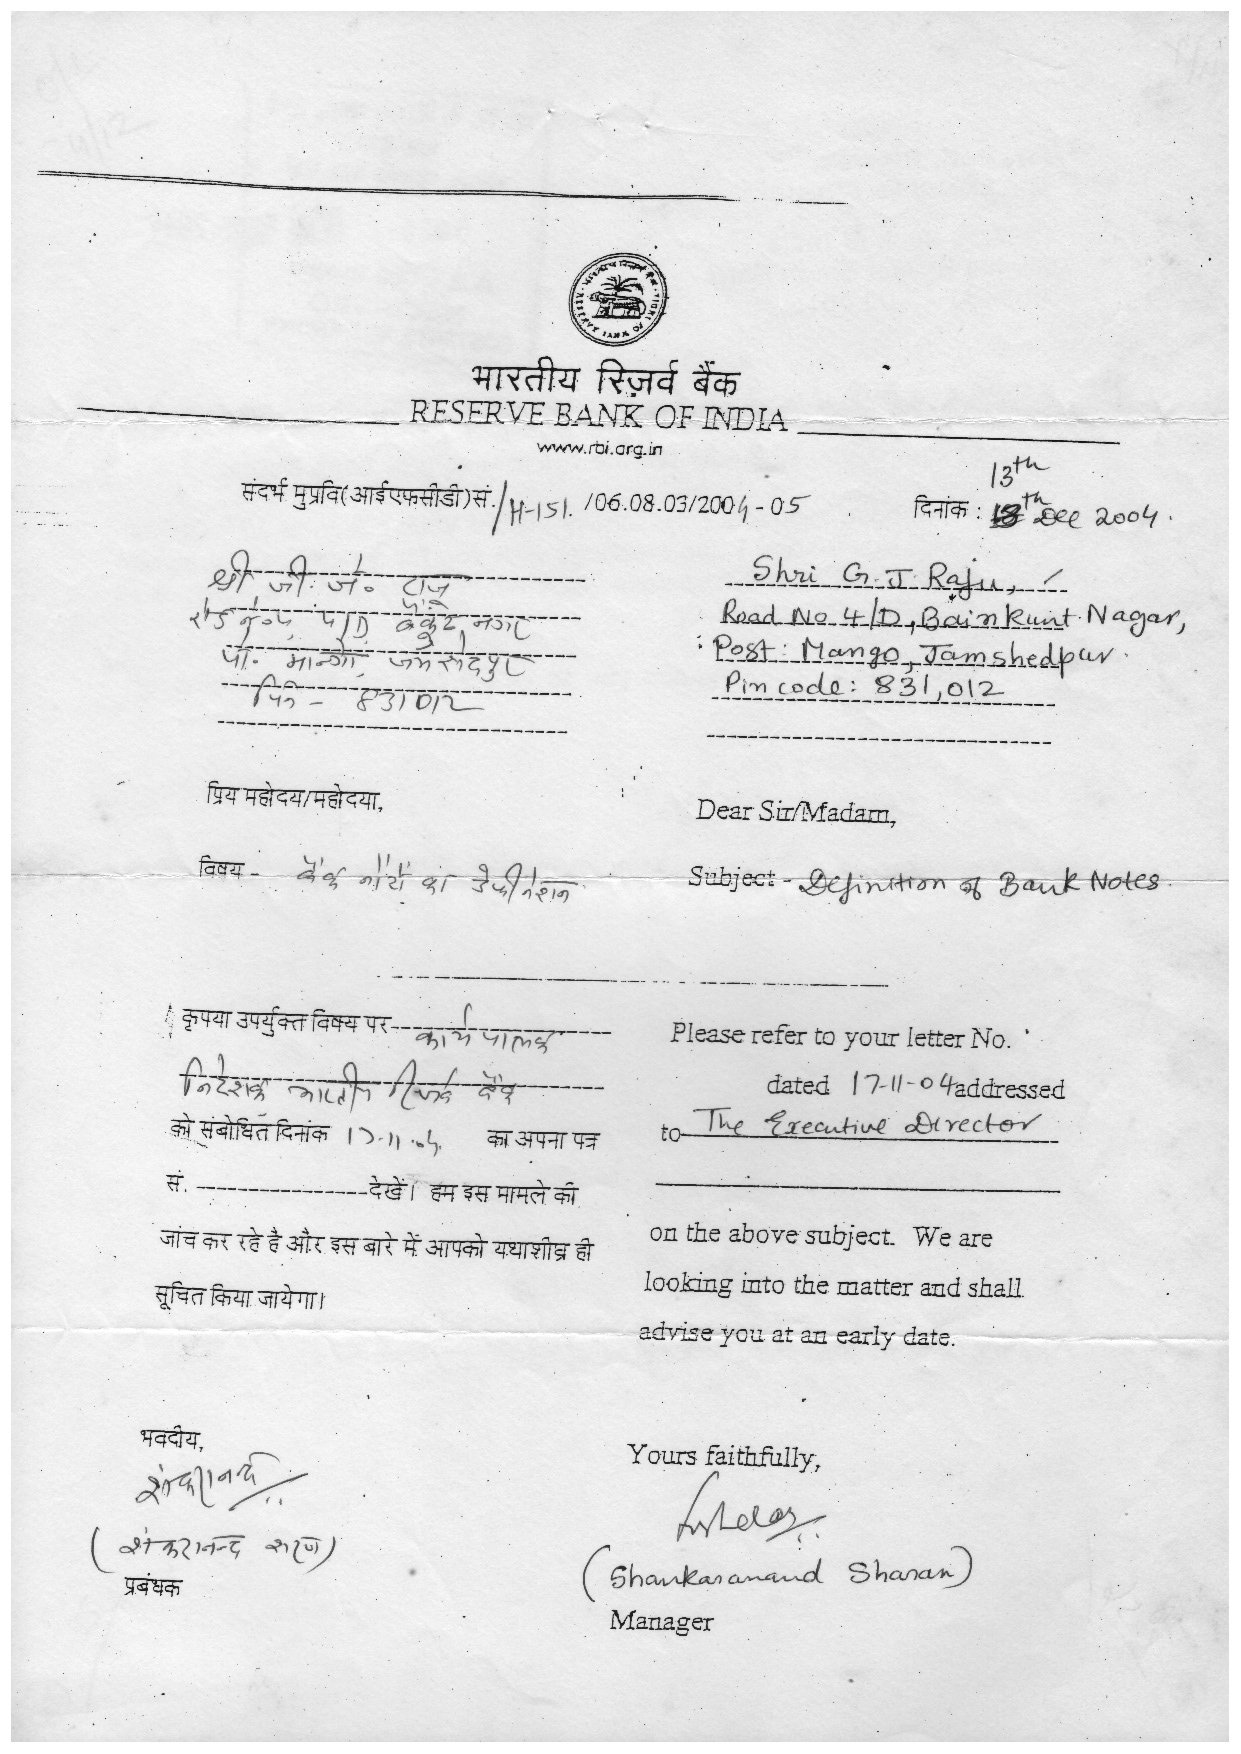 भारतीय रिज़र्व बैंक
RESERVE BANK OF INDIA
www.rbi.org.in
संदर्भ मुप्रवि(आईएफसीडी)सं./H-151./06.08.03/2004-05
13th
दिनांक : 13th Dec 2004.
श्री जी. जे. राजू
रोड नं० ५ प/D बैकुंट नगर
पो. मान्गो, जमशेदपुर
पिन - 831012
Shri G. J Raju,
Road No. 4/D, Bainkunt Nagar,
Post: Mango, Jamshedpur.
Pin code: 831,012
प्रिय महोदय/महोदया,
विषय - बैंक नोटों का डेफीनेशन
कृपया उपर्युक्त विषय पर कार्यपालक
निदेशक भारतीय रिजर्व बैंक
को संबोधित दिनांक 17-11-04 का अपना पत्र
सं. ----------------- देखें। हम इस मामले की
जांच कर रहे है और इस बारे में आपको यथाशीघ्र ही
सूचित किया जायेगा।
भवदीय,
शंकरानन्द
(शंकरानन्द शरण)
प्रबंधक
Dear Sir/Madam,
Subject - Definition of Bank Notes
Please refer to your letter No.
dated 17-11-04 addressed
to The Executive Director
on the above subject. We are
looking into the matter and shall
advise you at an early date.
Yours faithfully,
(Shankaranand Sharan)
Manager